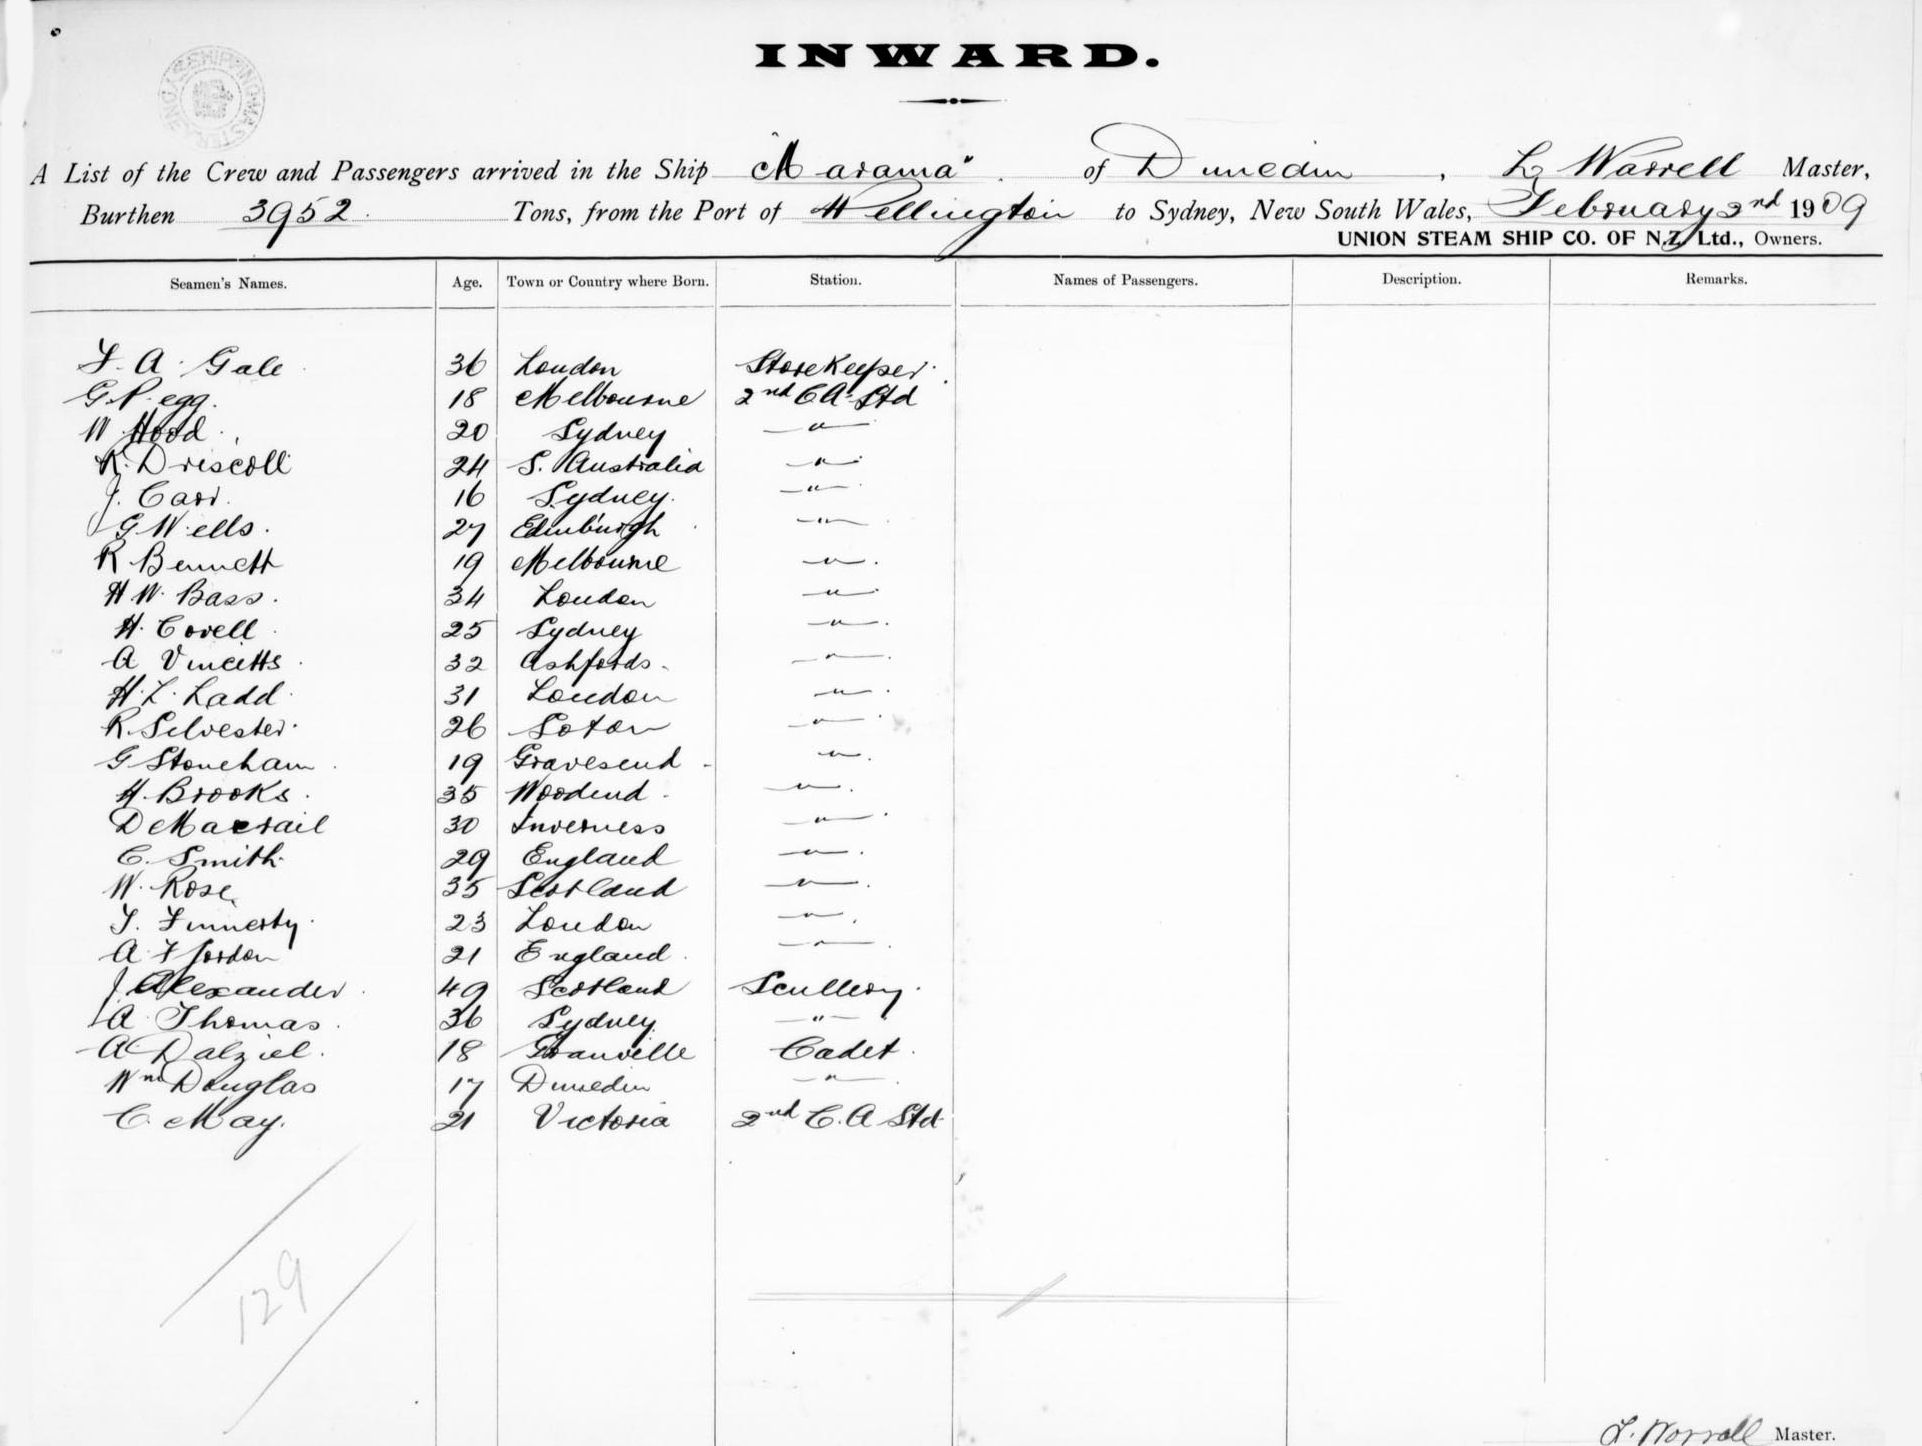 INWARD.
SHIPPING MASTER SYDNEY
A List of the Crew and Passengers arrived in the Ship "Marama" of Dunedin, L Worrell Master,
Burthen 3952 Tons, from the Port of Wellington to Sydney, New South Wales, February 2nd 1909
UNION STEAM SHIP CO. OF N.Z. Ltd., Owners.
Seamen's Names. Age. Town or Country where Born. Station. Names of Passengers. Description. Remarks.
F. A. Gale 36 London Storekeeper
G. Pegg. 18 Melbourne 2nd C A Std
W Hood 20 Sydney "
R. Driscoll 24 S. Australia "
J. Carr. 16 Sydney. "
G Wells. 27 Edinburgh "
R Bennett 19 Melbourne "
H W. Bass. 34 London "
H. Covell 25 Sydney "
A 32 Ashfords "
H. L. Ladd 31 London "
R. Silvester 26 Soton "
G Stoneham 19 Gravesend "
H. Brooks. 35 Woodend "
D MacRail 30 Inverness "
C. Smith 29 England "
W. Rose 35 Scotland "
T. Finnerty 23 London "
A F Jordon 21 England "
J. Alexander 49 Scotland Scullery
A Thomas. 36 Sydney "
A Dalziel. 18 Granville Cadet
Wm Douglas 17 Dunedin "
C. May. 21 Victoria 2nd C. A Std
129
L. Worrall Master.